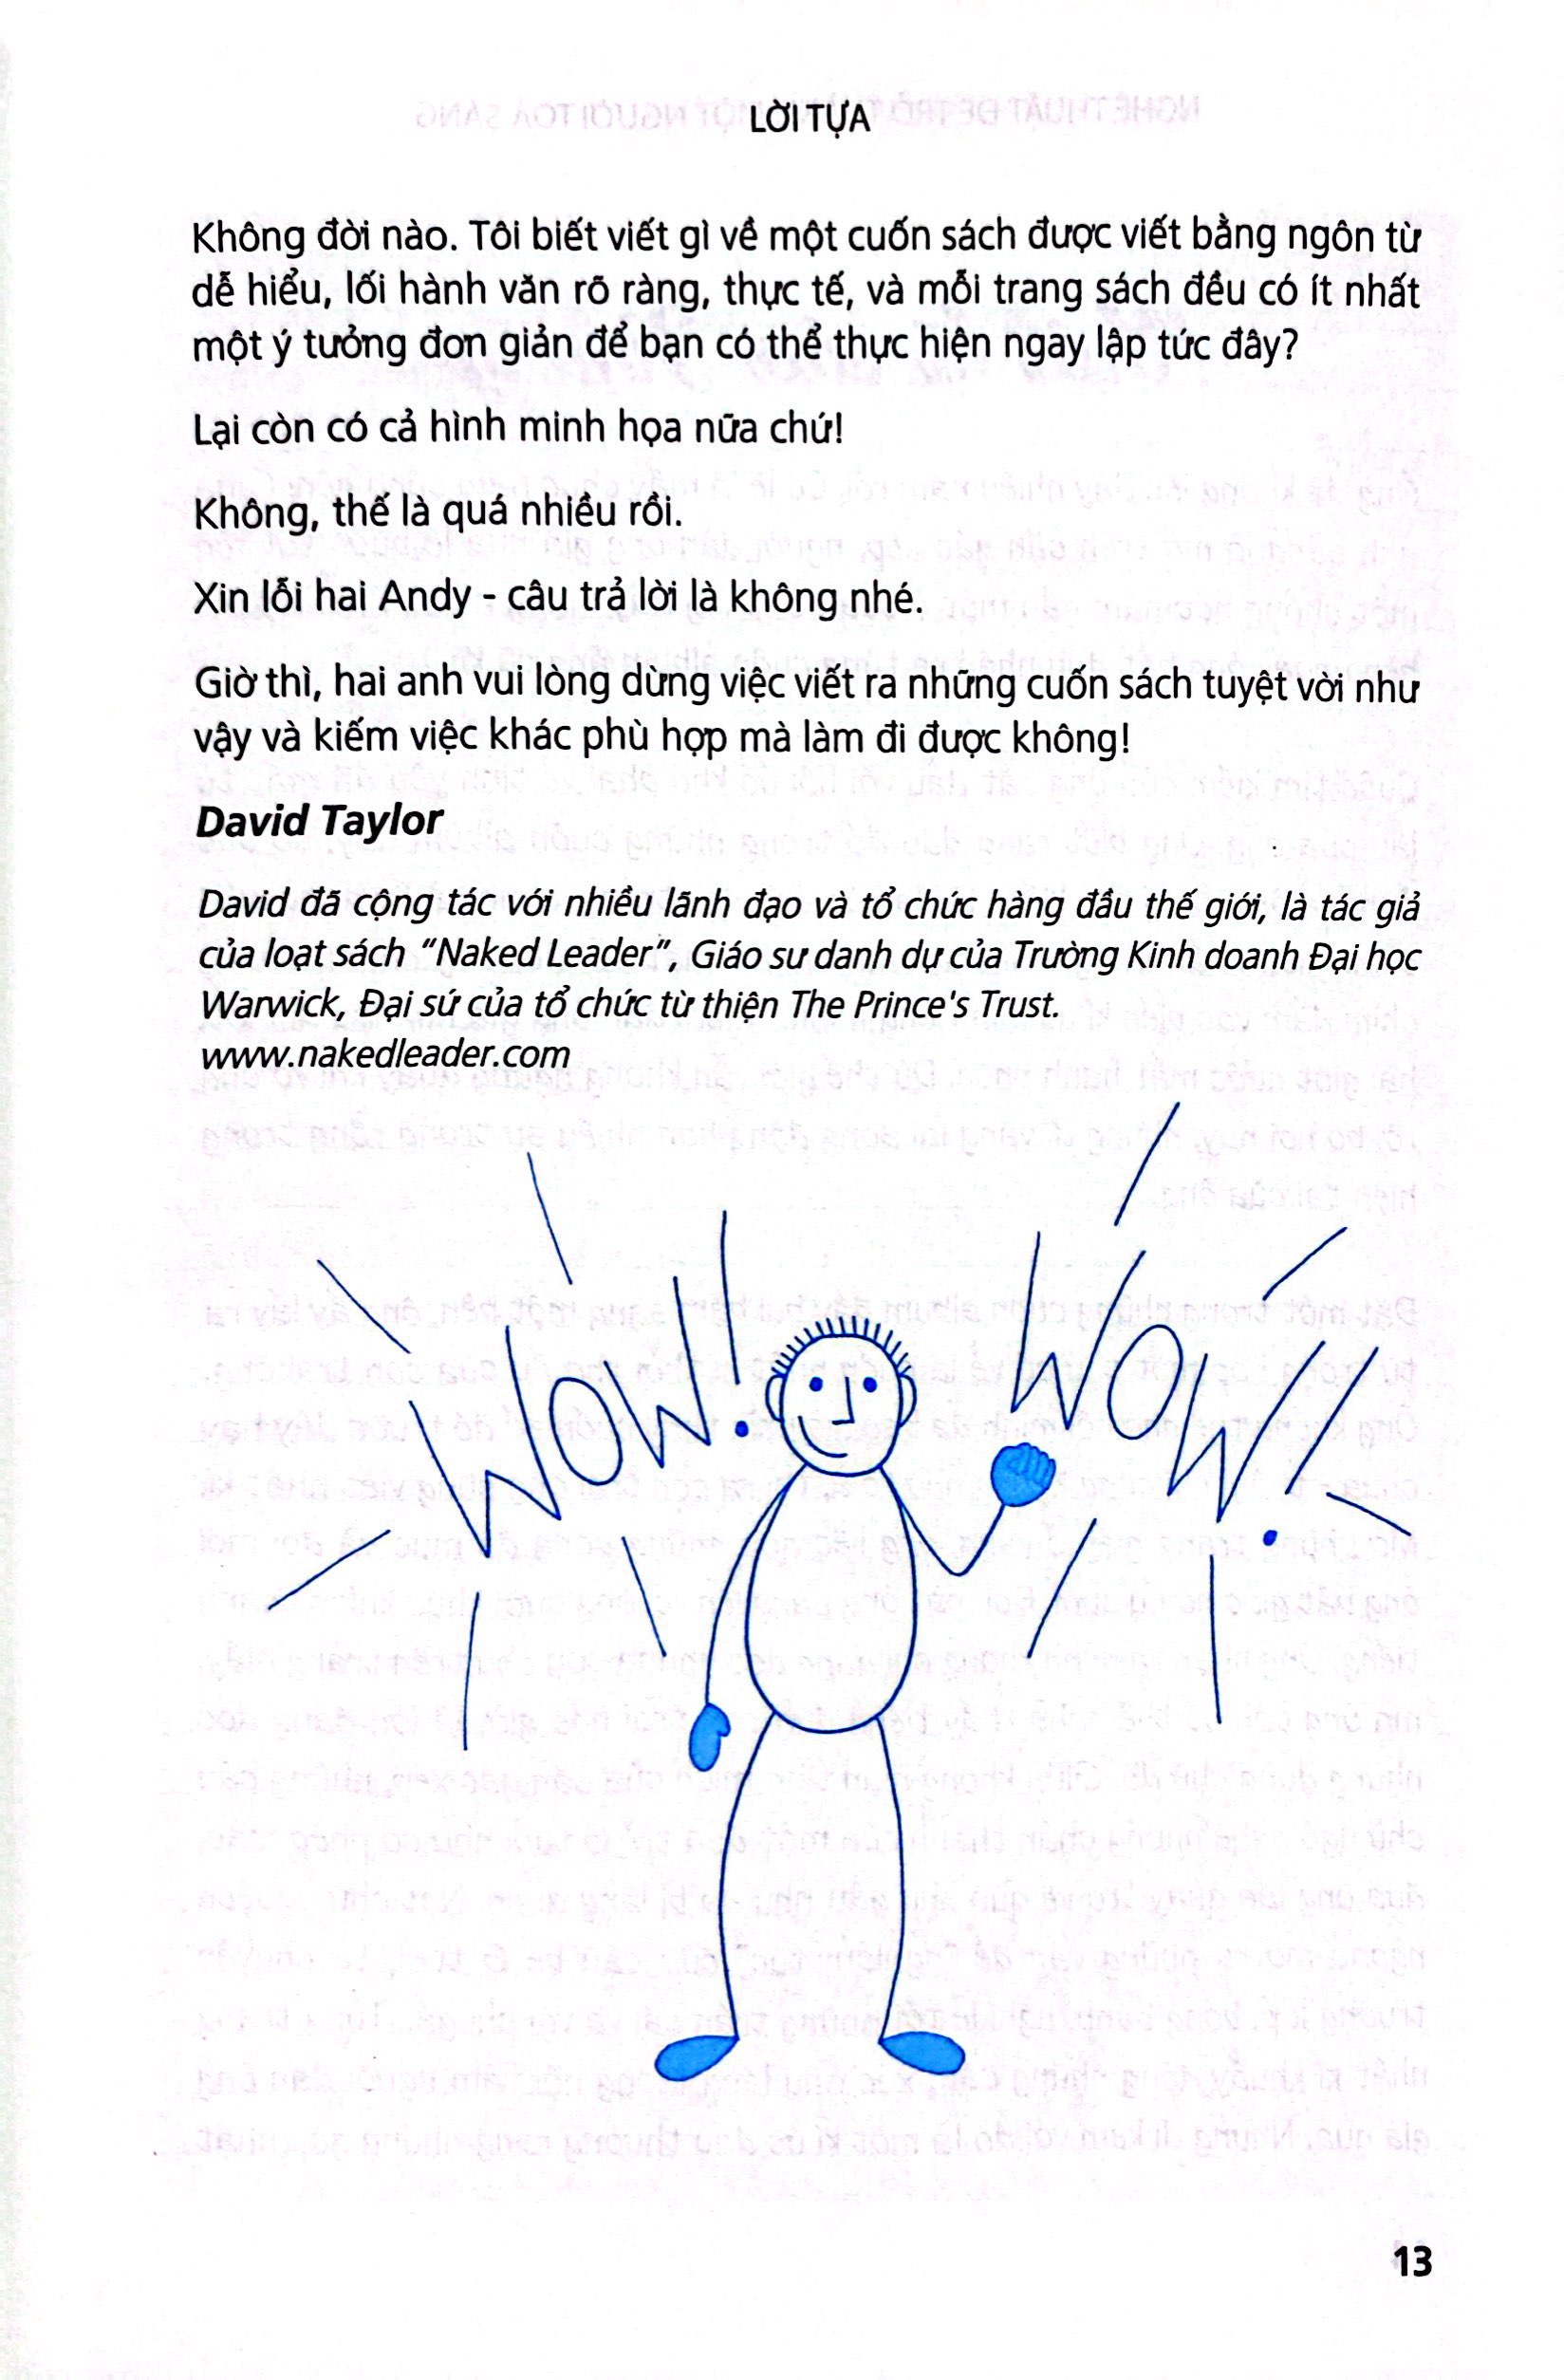 LỜI TỰA
Không đời nào. Tôi biết viết gì về một cuốn sách được viết bằng ngôn từ
dễ hiểu, lối hành văn rõ ràng, thực tế, và mỗi trang sách đều có ít nhất
một ý tưởng đơn giản để bạn có thể thực hiện ngay lập tức đây?
Lại còn có cả hình minh họa nữa chứ!
Không, thế là quá nhiều rồi.
Xin lỗi hai Andy - câu trả lời là không nhé.
Giờ thì, hai anh vui lòng dừng việc viết ra những cuốn sách tuyệt vời như
vậy và kiếm việc khác phù hợp mà làm đi được không!
David Taylor
David đã cộng tác với nhiều lãnh đạo và tổ chức hàng đầu thế giới, là tác giả
của loạt sách “Naked Leader”, Giáo sư danh dự của Trường Kinh doanh Đại học
Warwick, Đại sứ của tổ chức từ thiện The Prince's Trust.
www.nakedleader.com
WOW!
WOW!!
13